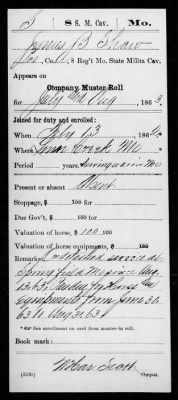 S 8 S. M. Cav. Mo.
James B Shaw
Co. , 8 Reg't Mo. State Militia Cav.
Appears on
Company Muster Roll
for July and Aug , 1863.
Joined for duty and enrolled:
When Feby 13 , 186
Where Linn Creek Mo
Period years. during war in Mo
Present or absent Absent
Stoppage, $ 100 for
Due Gov't, $ 100 for
Valuation of horse, $ 100
Valuation of horse equipments, $ 100
Remarks: on detached service at
Springfield Mo since Aug.
13, 63.
Equipments from June 30,
63 to Aug 31, 63
* See enrollment on card from muster-in roll.
Book mark:
Scott
Copyist.